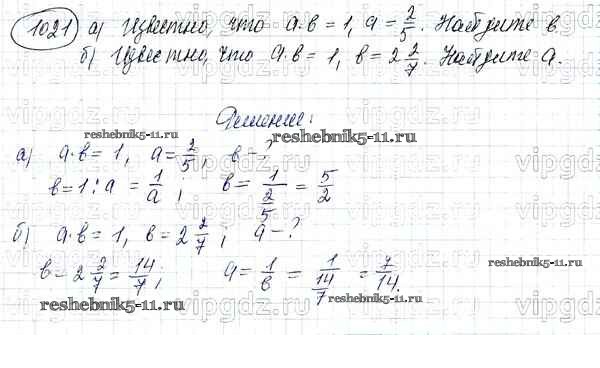 1021 а) Известно, что a·b = 1, a = 2/5. Найдите b.
б) Известно, что a·b = 1, b = 2 2/7. Найдите a.
Решение:
reshebnik5-11.ru
reshebnik5-11.ru
а) a·b = 1, a = 2/5, b = ?
b = 1 : a = 1/a; b = 1/(2/5) = 5/2
б) a·b = 1, b = 2 2/7; a - ?
b = 2 2/7 = 14/7; a = 1/b = 1/(14/7) = 7/14.
reshebnik5-11.ru
reshebnik5-11.ru
reshebnik5-11.ru
vipgdz.com